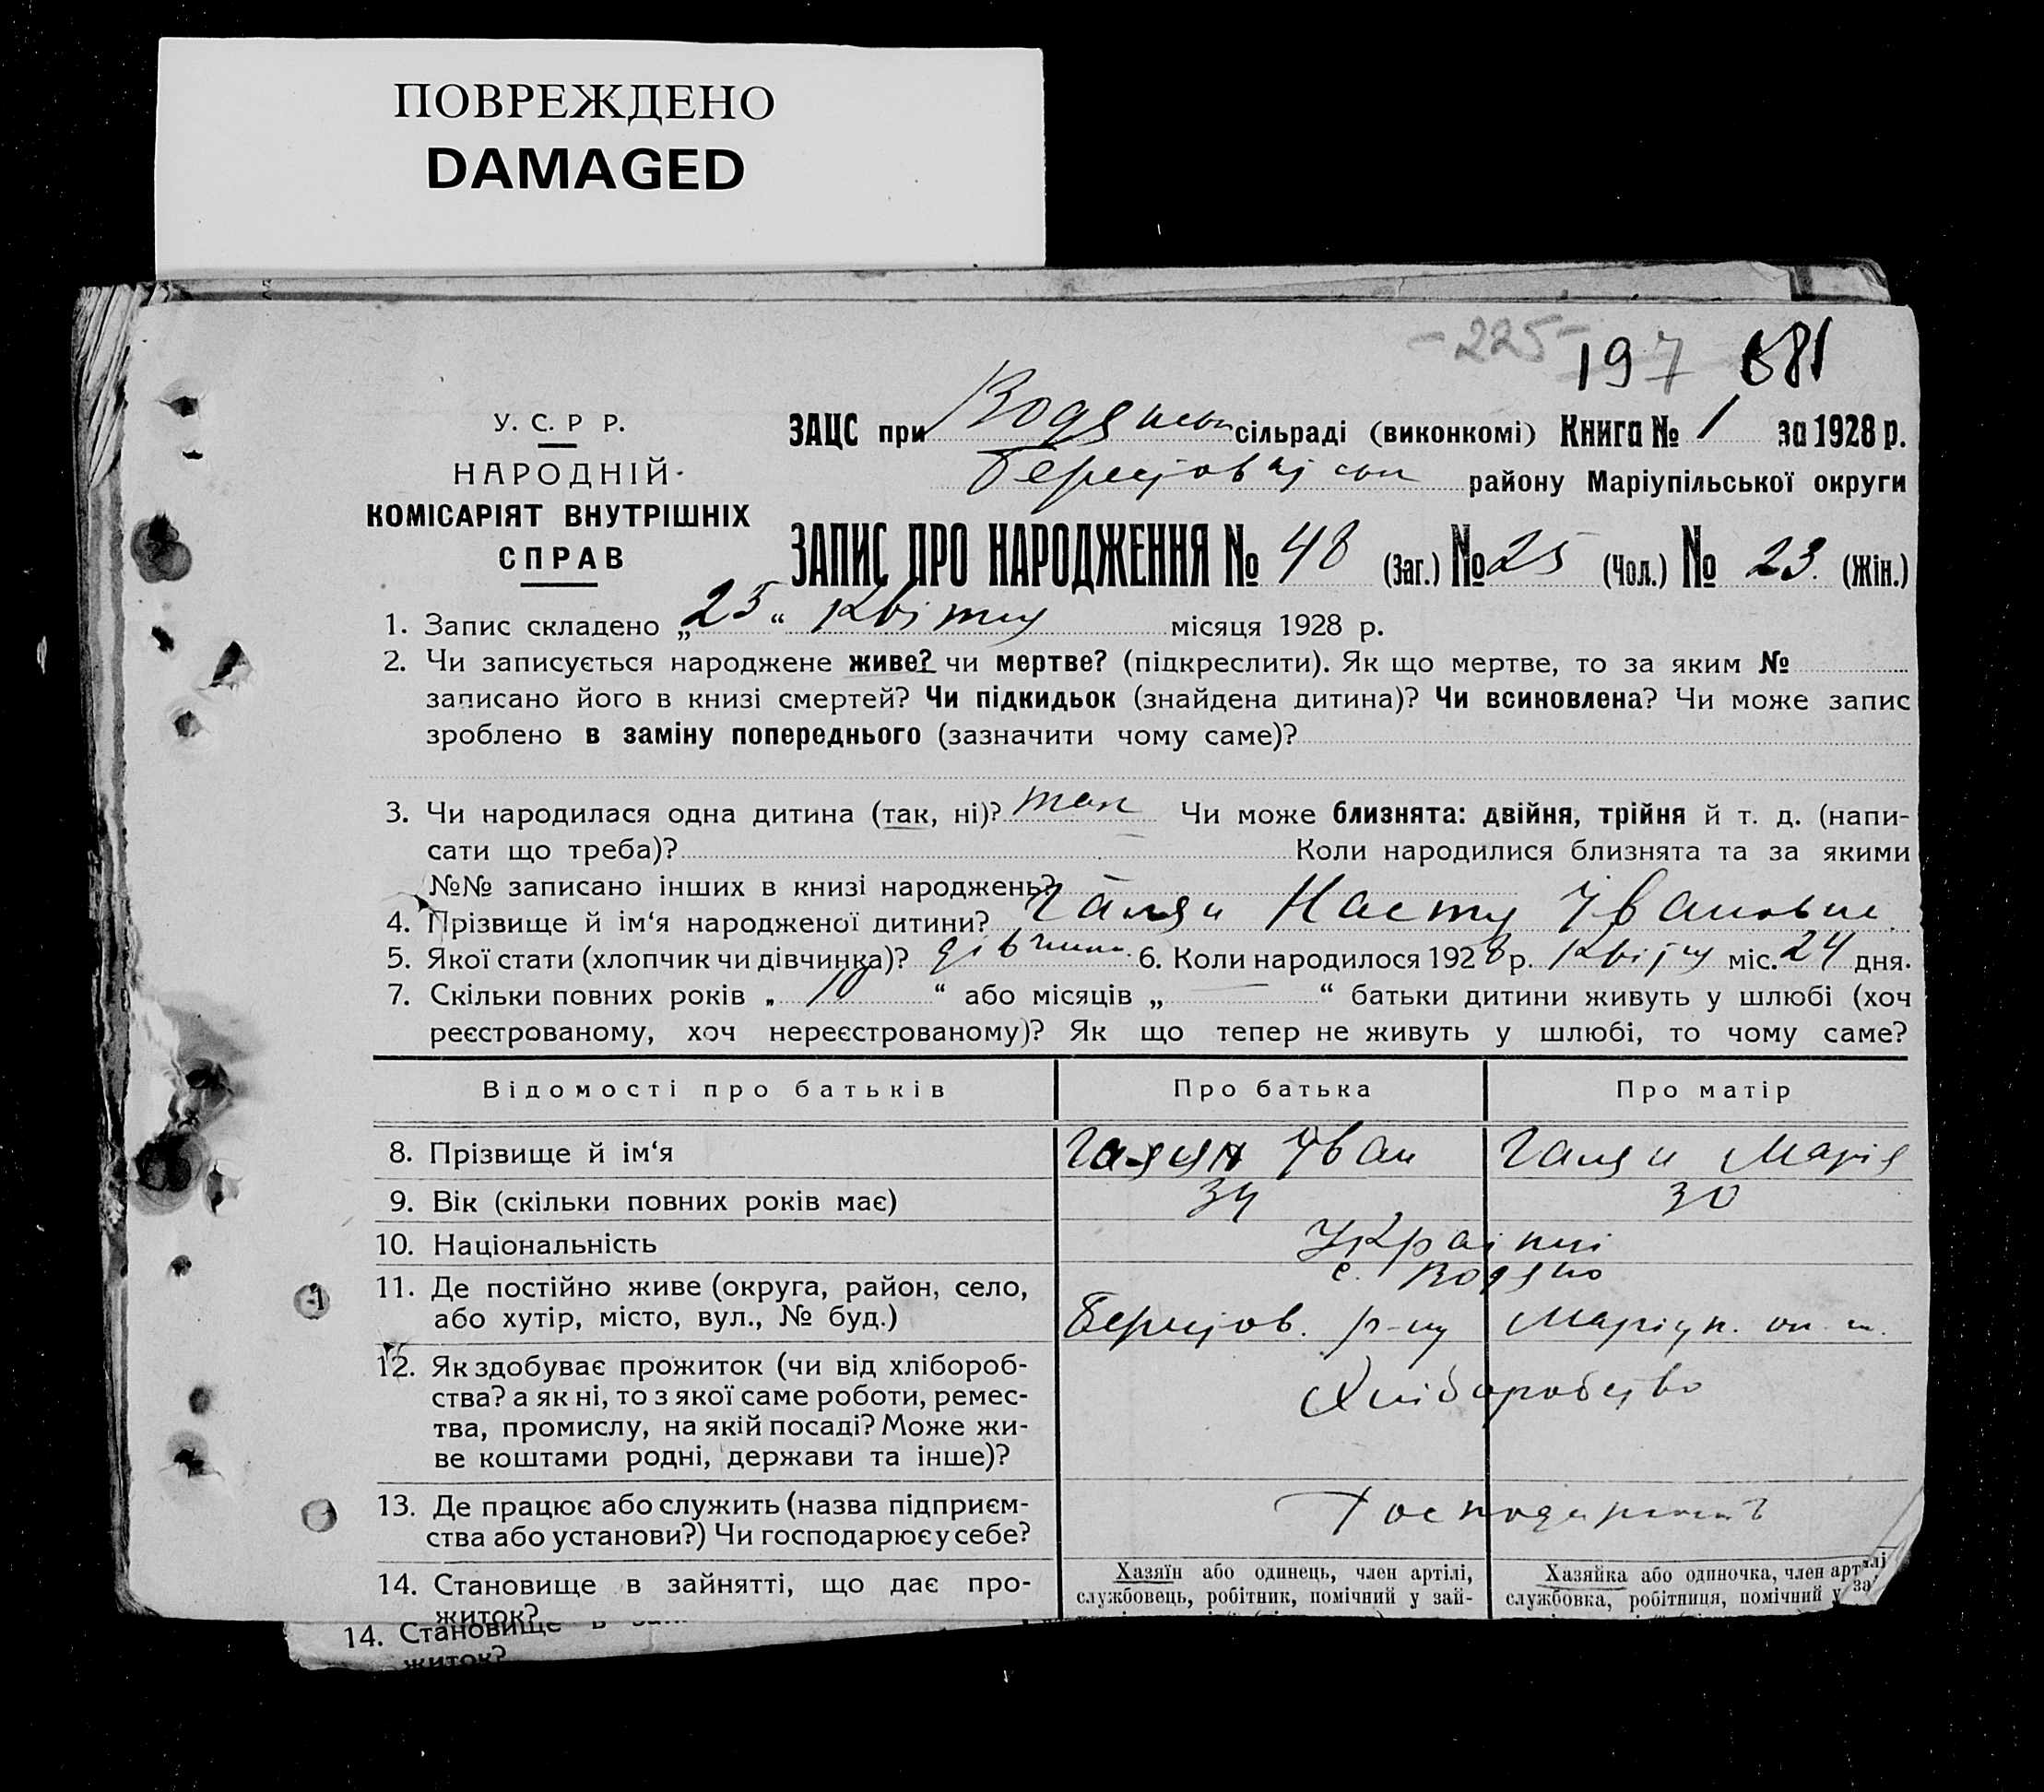 ПОВРЕЖДЕНО
DAMAGED
-225- 197 681
У. С. Р Р.
НАРОДНІЙ
КОМІСАРІЯТ ВНУТРІШНІХ
СПРАВ
ЗАЦС при Водянськ сільраді (виконкомі) Книга № 1 за 1928 р.
району Маріупільської округи
ЗАПИС ПРО НАРОДЖЕННЯ № 48 (Заг.) № 25 (Чол.) № 23. (Жін.)
1. Запис складено „25“ Квітня місяця 1928 р.
2. Чи записується народжене живе? чи мертве? (підкреслити). Як що мертве, то за яким №
записано його в книзі смертей? Чи підкидьок (знайдена дитина)? Чи всиновлена? Чи може запис
зроблено в заміну попереднього (зазначити чому саме)?
3. Чи народилася одна дитина (так, ні)? так Чи може близнята: двійня, трійня й т. д. (напи-
сати що треба)? — Коли народилися близнята та за якими
№№ записано інших в книзі народжень?
4. Прізвище й ім‘я народженої дитини? Галян Настя Івановна
5. Якої статі (хлопчик чи дівчинка)? дівчина. 6. Коли народилося 1928 р. Квітня міс. 24 дня.
7. Скільки повних років „ 10 “ або місяців „ — “ батьки дитини живуть у шлюбі (хоч
реєстрованому, хоч нереєстрованому)? Як що тепер не живуть у шлюбі, то чому саме?
Відомості про батьків Про батька Про матір
8. Прізвище й ім‘я Галян Іван Галян Марія
9. Вік (скільки повних років має) 34 30
10. Національність Українці
11. Де постійно живе (округа, район, село, с. Водяно
або хутір, місто, вул., № буд.) р-ну Маріуп. ок.
12. Як здобуває прожиток (чи від хлібороб-
ства? а як ні, то з якої саме роботи, ремес- Хліборобство
тва, промислу, на якій посаді? Може жи-
ве коштами родні, держави та інше)?
13. Де працює або служить (назва підприєм-
ства або установи?) Чи господарює у себе?
14. Становище в зайнятті, що дає про- Хазяїн або одинець, член артілі, Хазяйка або одиночка, член артілі
житок? службовець, робітник, помічний у зай- службовка, робітниця, помічний у за
14. Становище в
житок?